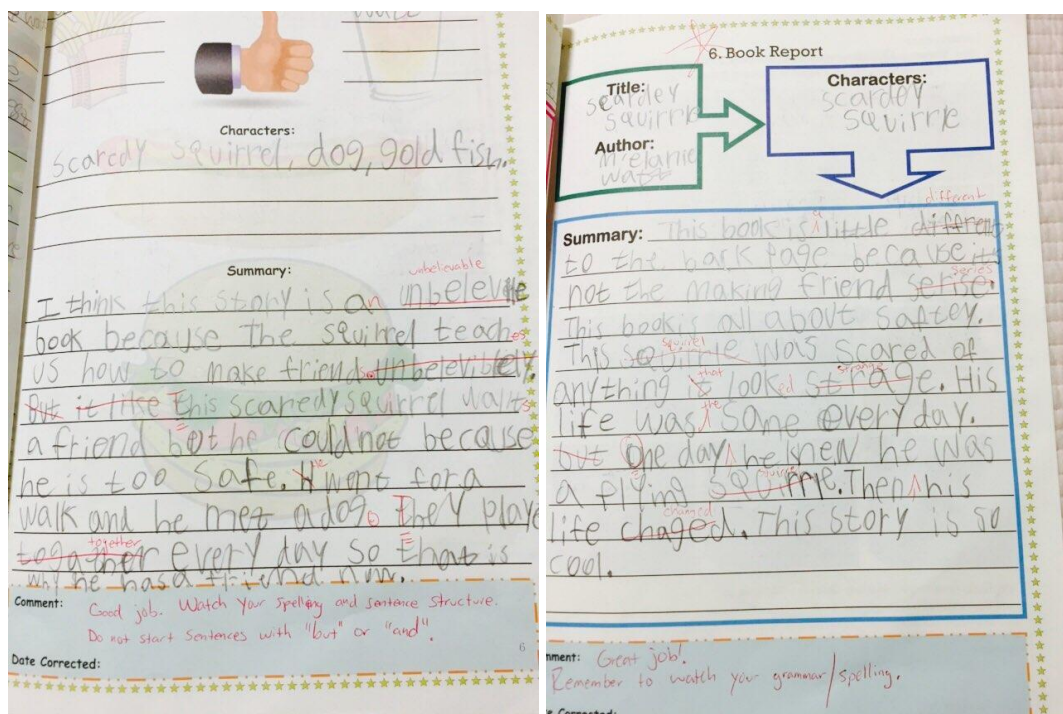 Characters:
scaredy squirrel, dog, gold fish.
Summary:
unbelievable
I think this story is an unbeleveble
book because the squirrel teaches
us how to make friends unbelevibley.
But it like This scaredy squirrel wants
a friend but he could not because
he is too safe. he went for a
walk and he met a dog. They play
together
togather every day so that is
why he has a friend now.
Comment: Good job. Watch your spelling and sentence structure.
Do not start sentences with "but" or "and".
Date Corrected:
6
6. Book Report
Title:
scardey
squirrle
Author:
melanie
watt
Characters:
scardey
squirrle
different
a
Summary: This book is little diffrent
to the back page because its
series
not the making friend serise.
This book is all about saftey.
squirrel
This squirrle was scared of
that strange
anything it looked strage. His
the
life was same every day.
but One day he knew he was
squirrel
a flying squirrle. Then his
changed
life chaged. This story is so
cool.
mment: Great job!
Remember to watch your grammar/spelling.